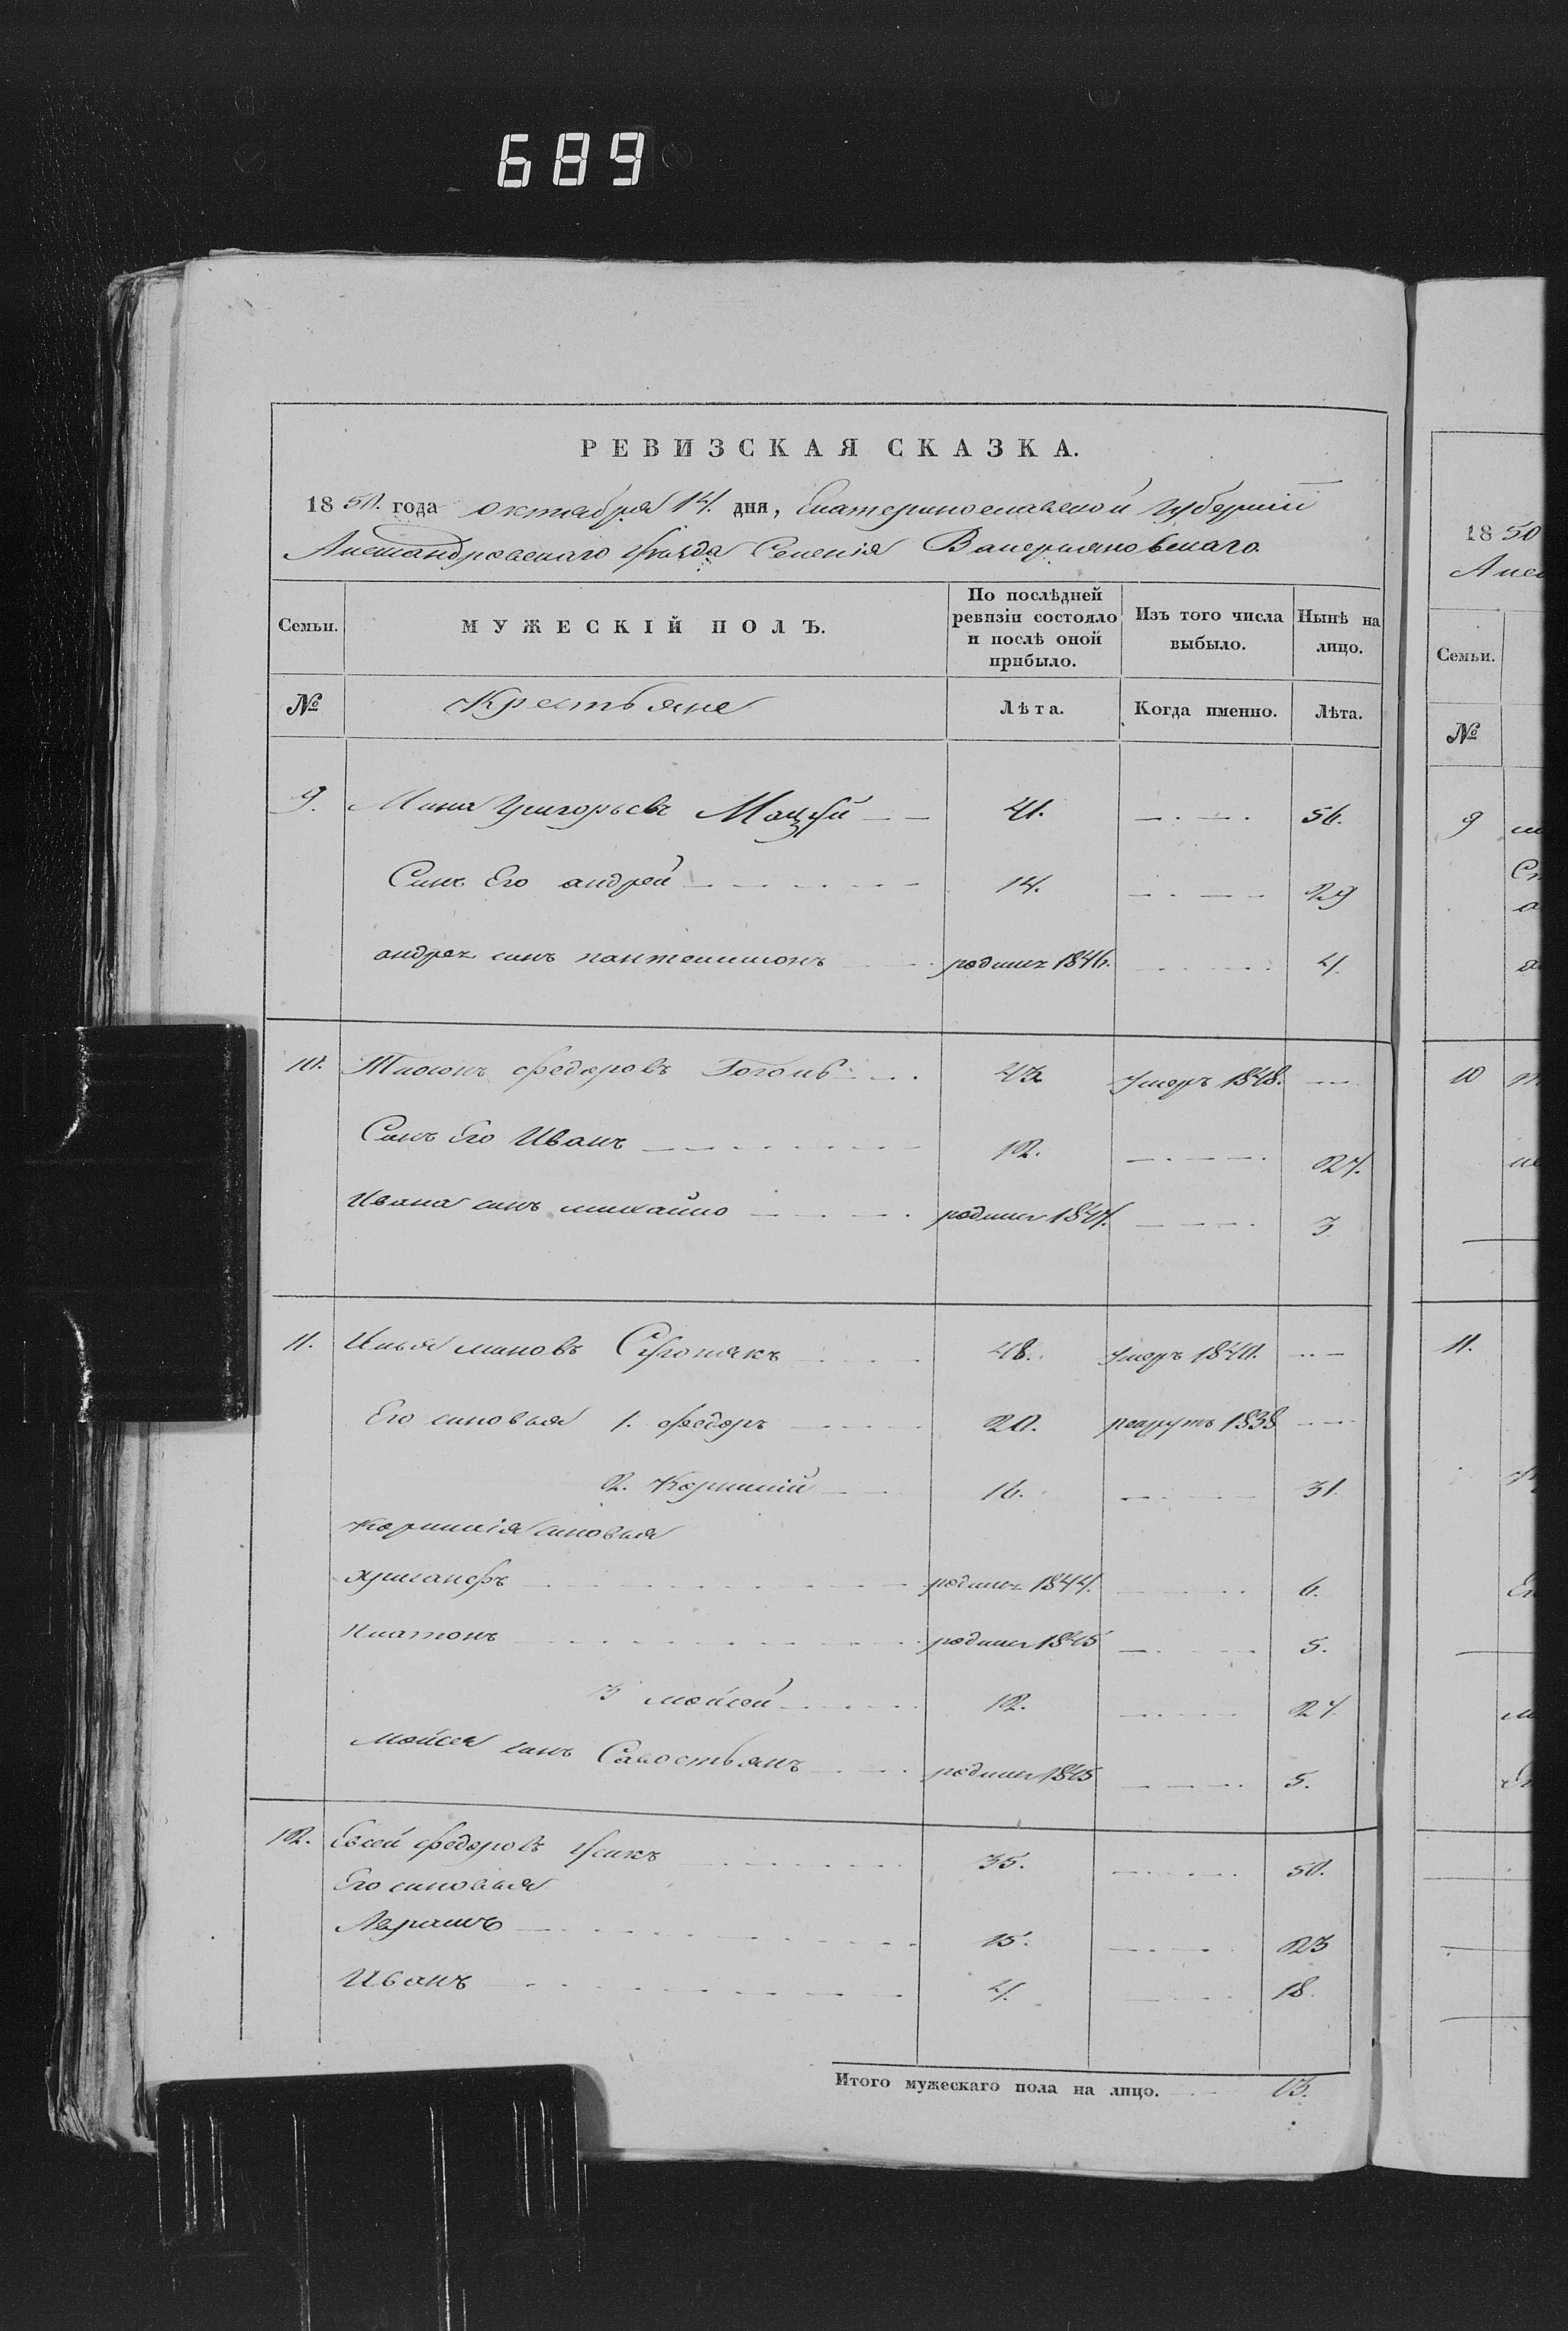 689
РЕВИЗСКАЯ СКАЗКА.
1850. года октября 14. дня, Екатеринославской губерніи
Александровскаго уѣзда Селенія Валерьяновскаго.
Семьи. МУЖЕСКІЙ ПОЛЪ. По послѣдней ревизіи состояло и послѣ оной прибыло. Изъ того числа выбыло. Нынѣ на лицо.
№ Крестьяне Лѣта. Когда именно. Лѣта.
9. Мина Григорьевъ Мацуй 41. 56.
Синъ Его андрей 14. 29
андрея синъ пантелимонъ родилсь 1846. 4
10. федоровъ Гоголь 43 умеръ 1848.
Синъ Его Иванъ 12. 27.
Ивана синъ михайло родилсь 1847. 3
11. Илья миновъ 48. умеръ 1840.
Его синовья 1. федоръ 20. рекрутъ 1838
2. Корнилій 16. 31
Корнилія синовья
родилсь 1844. 6.
платонъ родилсь 1845 5.
3 мойсей 12. 27
Мойсея синъ Савостьянъ родилсь 1845 5.
12. Евсей федоровъ Усикъ 35. 50.
Его синовья
Аврамъ 15. 23
Иванъ 4. 18.
Итого мужескаго пола на лицо. 13.
1850
Семьи.
№
9
10
11.